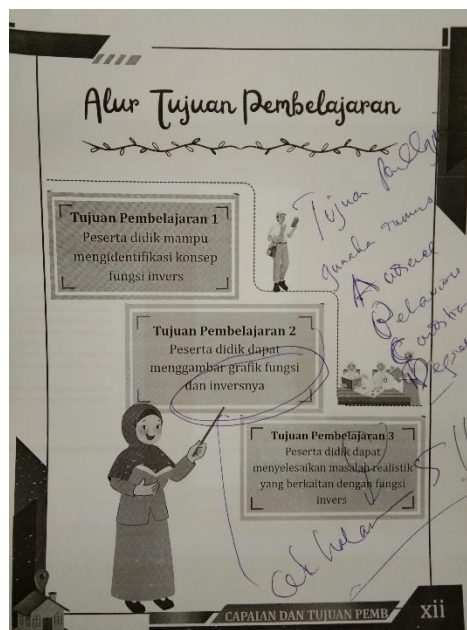 Alur Tujuan Pembelajaran
Tujuan Pembelajaran 1
Peserta didik mampu
mengidentifikasi konsep
fungsi invers
Tujuan Pembelajaran 2
Peserta didik dapat
menggambar grafik fungsi
dan inversnya
Tujuan Pembelajaran 3
Peserta didik dapat
menyelesaikan masalah realistik
yang berkaitan dengan fungsi
invers
Tujuan
CAPAIAN DAN TUJUAN PEMB
xii